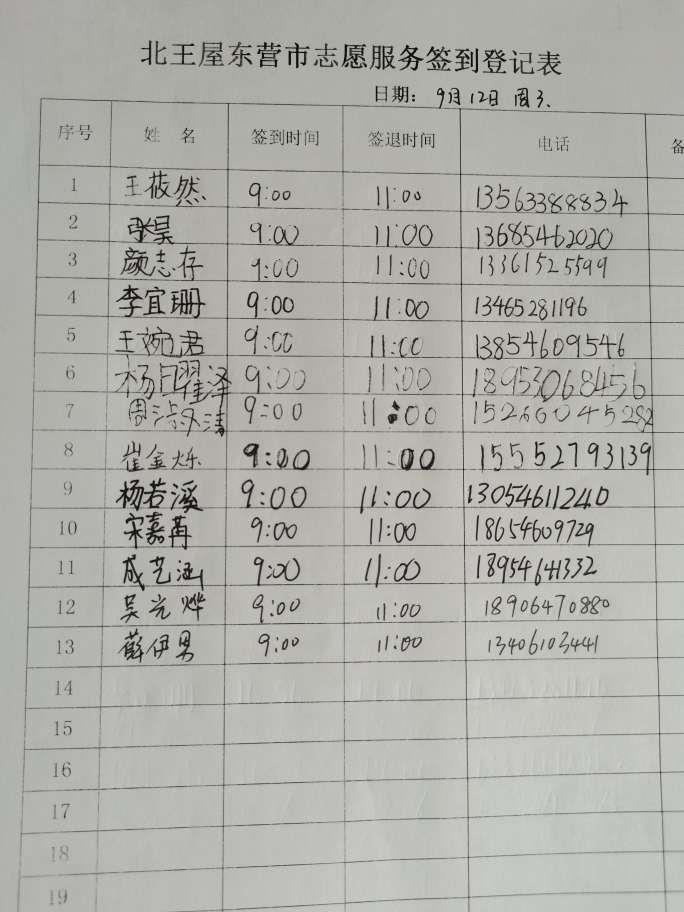 北王屋东营市志愿服务签到登记表
日期： 9月12日 周3.
序号 姓 名 签到时间 签退时间 电话 备
1 王莜然 9:00 11:00 13563388834
2 张昊 9:00 11:00 13685462020
3 颜志存 9:00 11:00 13361525599
4 李宜珊 9:00 11:00 13465281196
5 王婉君 9:00 11:00 13854609546
6 杨曜泽 9:00 11:00 18953068456
7 9:00 11:00 15266045282
8 崔金烁 9:00 11:00 15552793139
9 杨若溪 9:00 11:00 13054611240
10 宋嘉苒 9:00 11:00 18654609729
11 成艺涵 9:00 11:00 18954641332
12 吴光烨 9:00 11:00 18906470880
13 薛伊男 9:00 11:00 13406103441
14
15
16
17
18
19